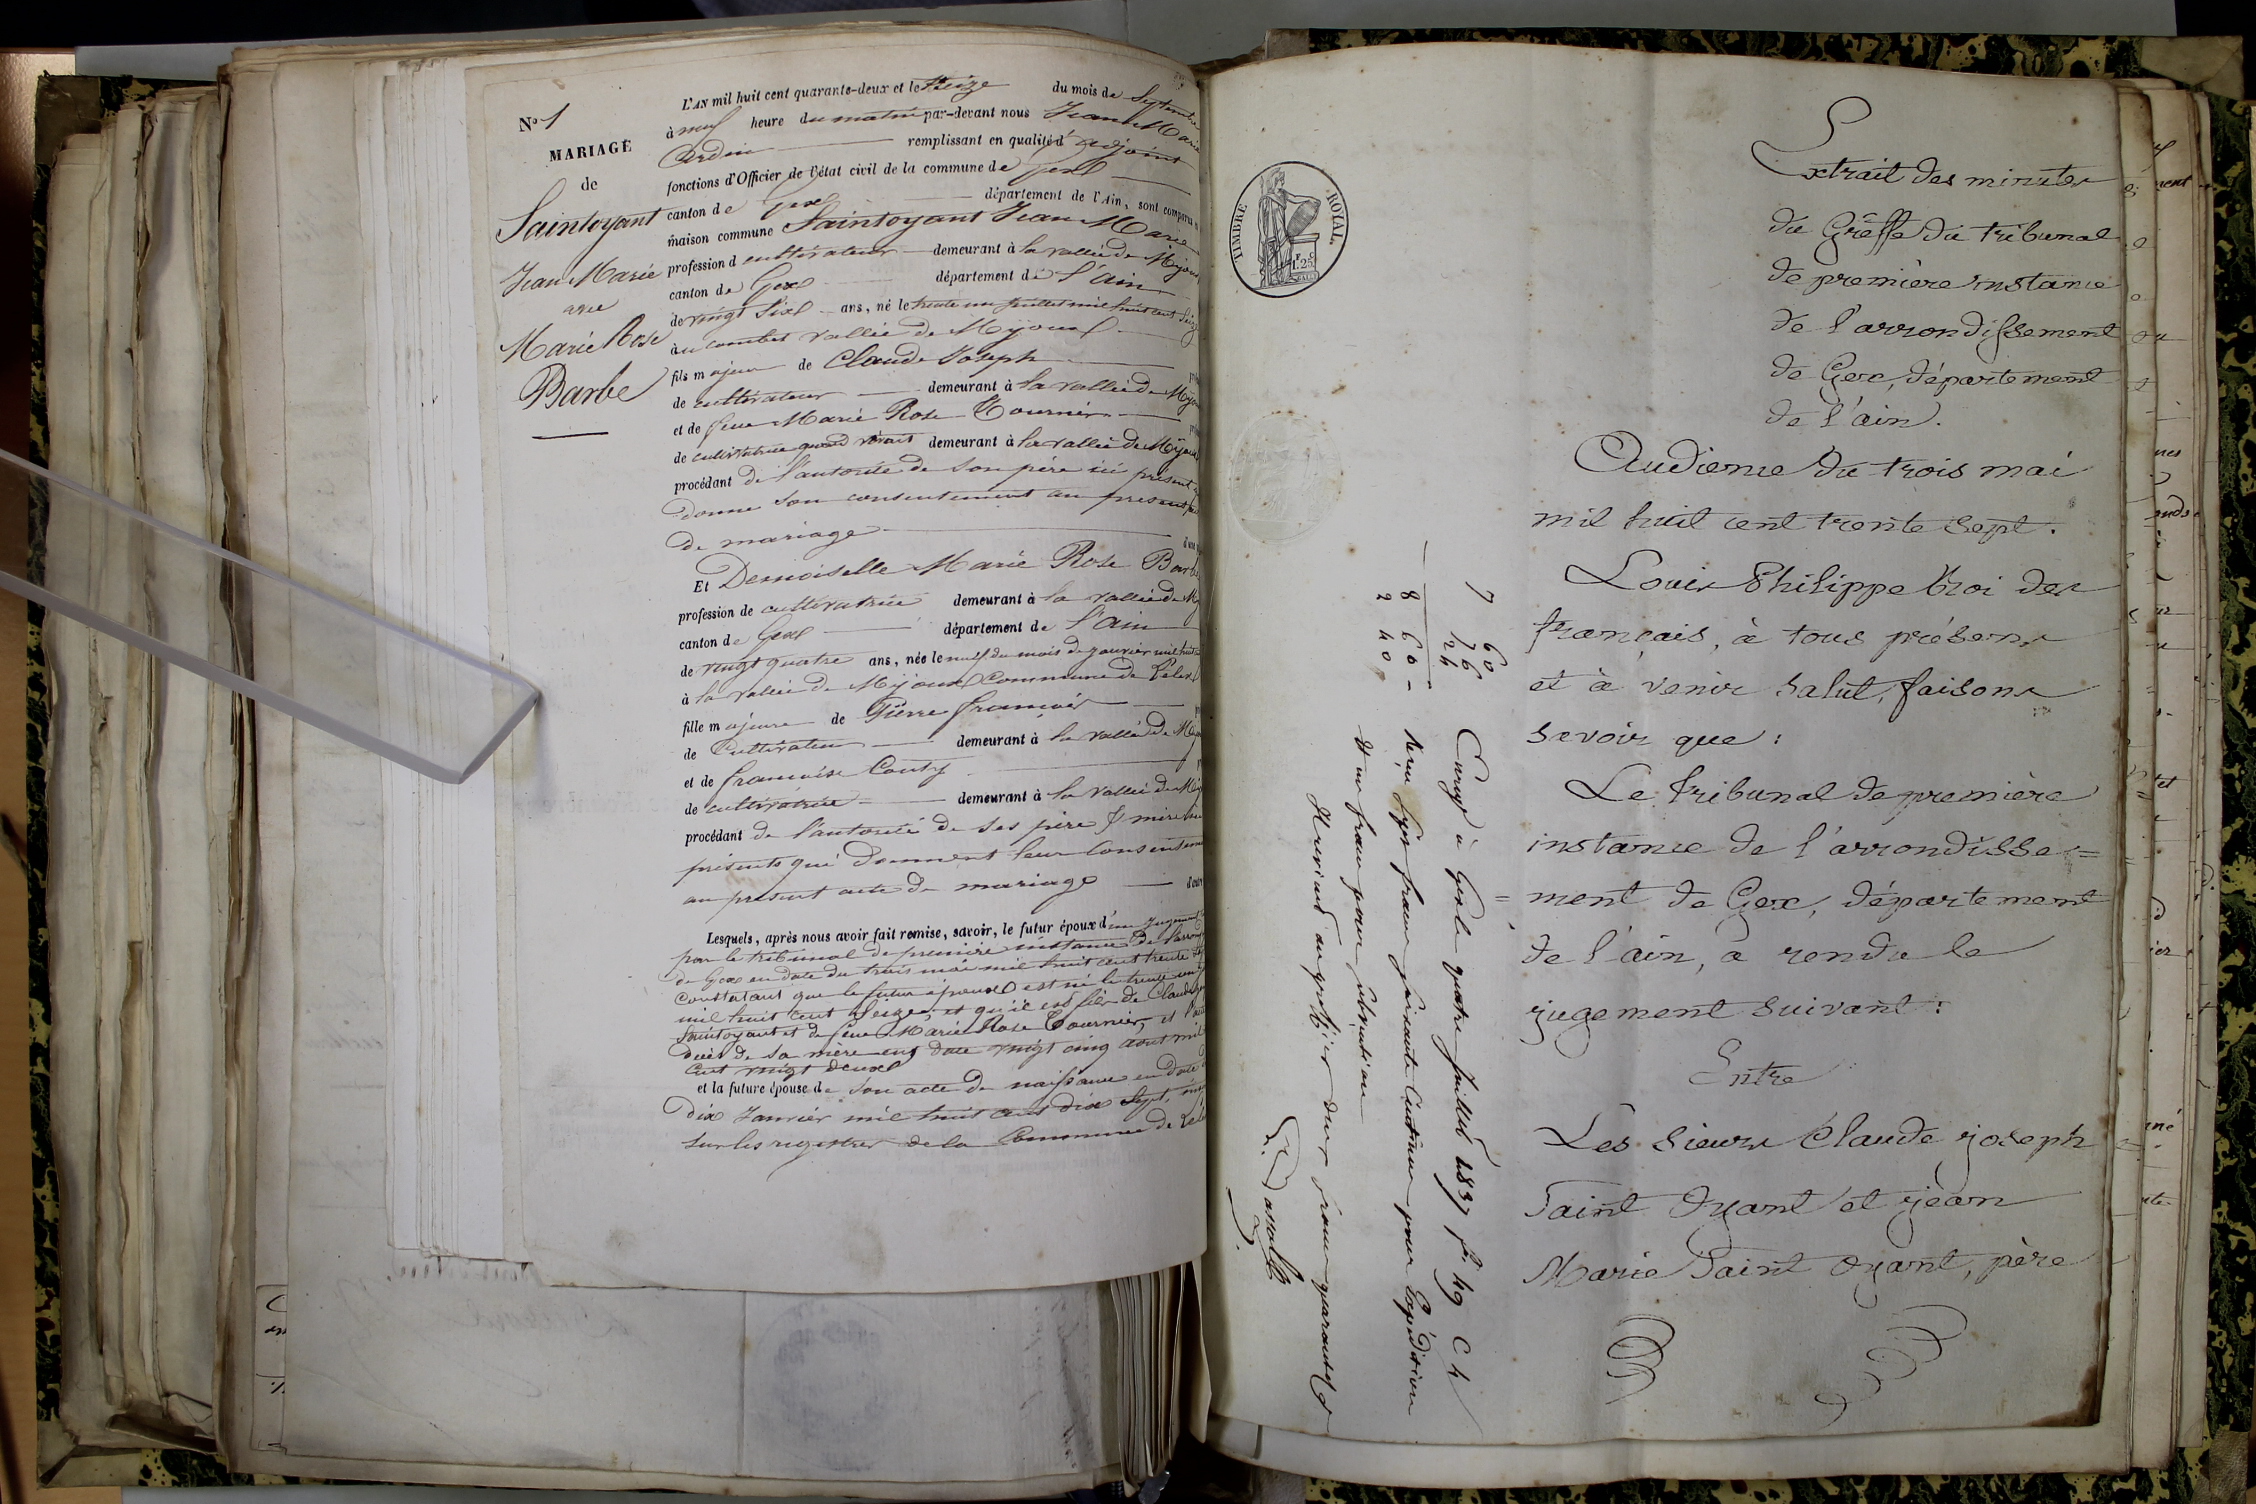 N° 1
MARIAGE
de
Saintoyant
Jean Marie
avec
Marie Rose
Barbe
L'AN mil huit cent quarante-deux et le seize du mois de Septembre
à neuf heure du matin par-devant nous Jean Marie
remplissant en qualité d'adjoint
fonctions d'Officier de l'état civil de la commune de
canton de Gex département de l'Ain, sont comparus
maison commune Saintoyant Jean Marie
profession d cultivateur demeurant à la vallée de Mijoux
canton de Gex département de l'ain
de vingt six ans, né le trente un juillet mil huit cent seize
vallée de Mijoux
fils majeur de Claude Joseph
de cultivateur demeurant à la vallée de
et de feue Marie Rose Tournier
de cultivatrice quand vivait demeurant à la vallée de Mijoux
procédant de l'autorité de son père ici présent
donne son consentement au présent
de mariage
Et Demoiselle Marie Rose Barbe
profession de cultivatrice demeurant à la vallée de
canton de Gex département de l'ain
de vingt quatre ans, née le neuf du mois de janvier mil huit
à la vallée de Mijoux commune de Lélex
fille majeure de Pierre François
de Cultivateur demeurant à la vallée de
et de françoise
de cultivatrice demeurant à la vallée de
procédant de l'autorité de ses père & mère
présents qui donnent leur
au présent acte de mariage
Lesquels, après nous avoir fait remise, savoir, le futur époux d'un Jugement
par le tribunal de première instance de
de Gex en date du trois mai mil huit cent trente
constatant que le futur époux est né le trente un
mil huit cent Seize, et qu'il est fils de Claude
Saintoyant et de feue Marie Rose Tournier, et
décès de sa mère en date vingt cinq aout mil
cent vingt deux
et la future épouse de son acte de naissance en date
dix Janvier mil huit cent dix sept,
sur les registres de la Commune de
TIMBRE ROYAL.
1 F. 25 C.
Extrait des minutes
du Grêffe du tribunal
de première instance
de l'arrondissement
de Gex, département
de l'ain.
Audience du trois mai
mil huit cent trente sept.
Louis Philippe Roi des
français, à tous présens
et à venir salut, faisons
savoir que :
Le tribunal de première
instance de l'arrondisse=
=ment de Gex, département
de l'ain, a rendu le
jugement suivant :
Entre
Les sieurs Claude joseph
Saint Oyant et jean
Marie Saint Oyant, père
7 60
76
24
8 60
2 40
à Gex le quatre juillet 1837 f° 49 C 4
Reçu sept francs soixante Centimes pour Expédition
& un franc pour rédaction
Il revient au greffier deux francs quarante